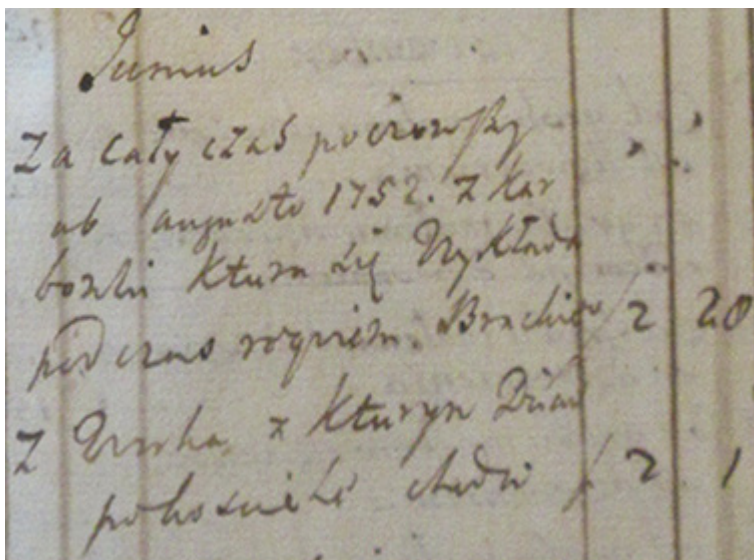 Junius
Za cały czas poczowszy
ab augusto 1752. z Kar
bonki ktura się Wykłada
podczas requiem. Brackie / 2 20
Z Worka z kturym Dziad
po kosciele chodzi / 2 1